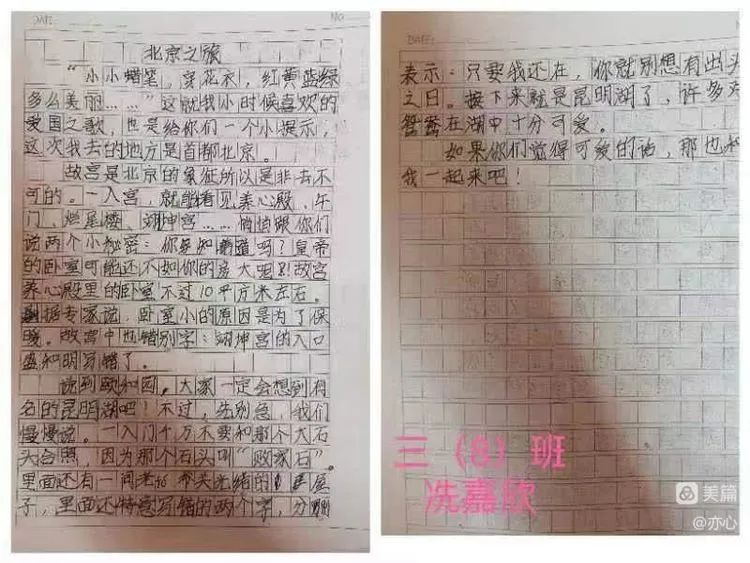 DATE
NO
北京之旅
“小小蜡笔，穿花衣，红黄蓝绿
多么美丽……”这就我小时候喜欢的
爱国之歌，也是给你们一个小提示，
这次我去的地方是首都北京。
故宫是北京的象征所以是非去不
可的。一入宫，就能看见养心殿、午
门、烂尾楼、翊坤宫……悄悄跟你们
说两个小秘密：你知道吗？皇帝
的卧室可能还不如你的大呢！故宫
养心殿里的卧室不过10平方米左右。
据专家说，卧室小的原因是为了保
暖。故宫中也错别字：翊坤宫的入口
盛和明写错了。
说到颐和园，大家一定会想到有
名的昆明湖吧！不过，先别急，我们
慢慢说。一入门千万不要和那个大石
头合照，因为那个石头叫“败家石”。
里面还有一间老 光绪的 屋
子，里面还特意写错的两个字，分别
DATE:
表示：只要我还在，你就别想有出头
之日。接下来就是昆明湖了，许多
鸳鸯在湖中十分可爱。
如果你们觉得可爱的话，那也和
我一起来吧！
三（8）班
冼嘉欣
美篇
@亦心